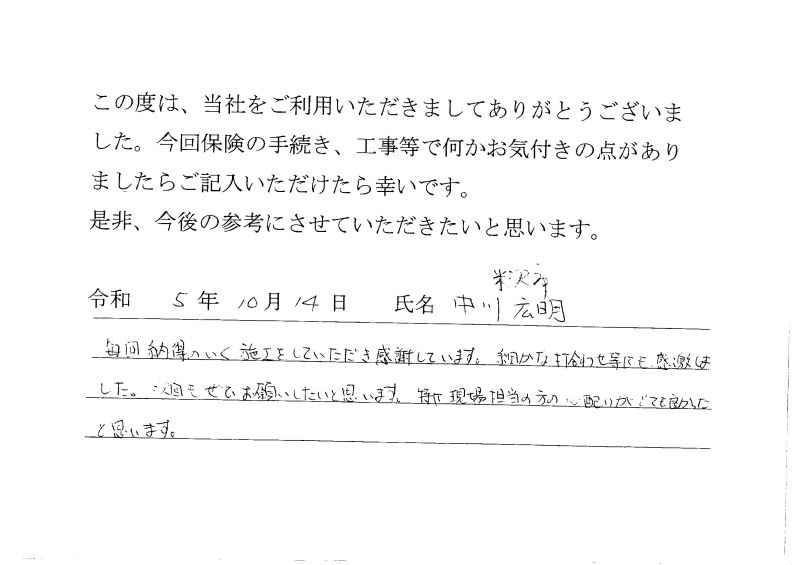 この度は、当社をご利用いただきましてありがとうございま
した。今回保険の手続き、工事等で何かお気付きの点があり
ましたらご記入いただけたら幸いです。
是非、今後の参考にさせていただきたいと思います。
米沢市
令和 5年 10月 14日 氏名 中川 広明
毎回納得のいく施工をしていただき感謝しています。細かな打合わせ等にも感激しま
した。次回もぜひお願いしたいと思います。特に現場担当の方の心配りがとても良かった
と思います。